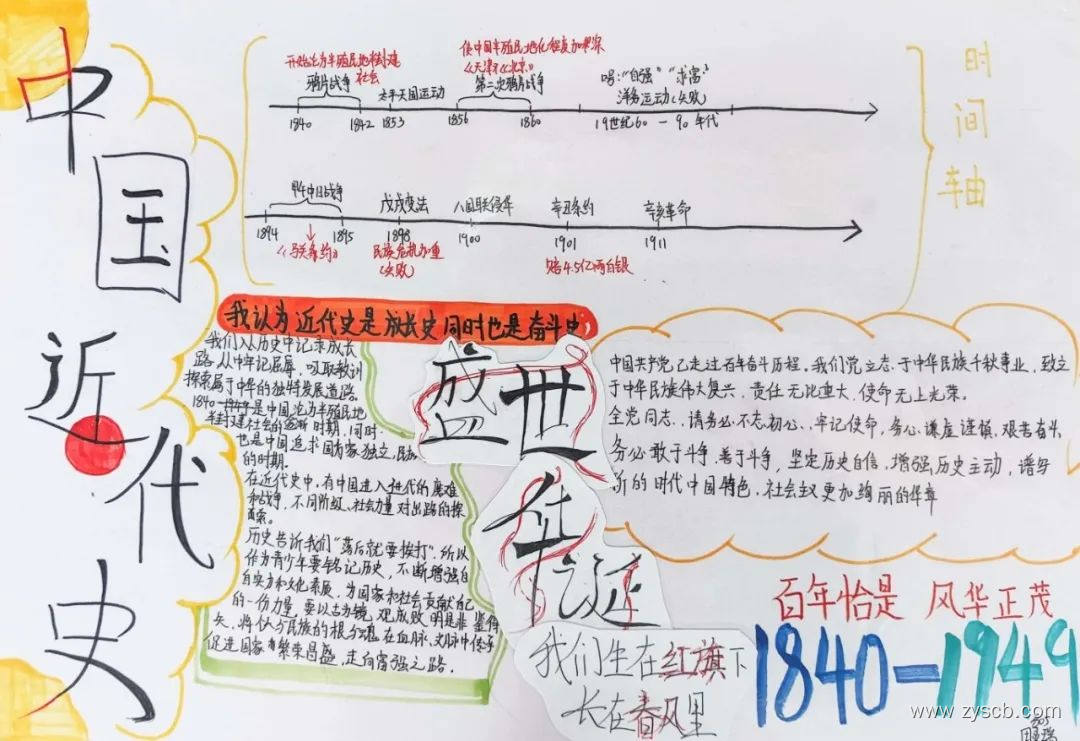 中国近代史
时间轴
开始沦为半殖民地半封建
社会
使中国半殖民地化程度加深
《天津》《北京》
喊："自强""求富"
鸦片战争
太平天国运动
第二次鸦片战争
洋务运动(失败)
1840
1842
1853
1856
1860
19世纪60-90年代
甲午中日战争
戊戌变法
八国联侵华
辛丑条约
辛亥革命
1894
1895
1898
1900
1901
1911
《马关条约》
民族危机加重
(失败)
赔4.5亿两白银
我认为近代史是成长史同时也是奋斗史
我们从历史中记录成长
路,从中牢记屈辱,吸取教训
探索属于中华的独特发展道路
1840-1949是中国沦为半殖民地
半封建社会的时期,同时.
也是中国追求国家独立,民族
的时期.
在近代史中,有中国进入近代的磨难
和战争,不同阶级、社会力量对出路的探
索.
历史告诉我们"落后就要挨打".所以
作为青少年要铭记历史,不断增强自
自实力和文化素质,为国家和社会贡献自己
的一份力量,要以古为镜,观成败,明是非,鉴得
失,将个人与民族的根与魂在血脉、文脉中传承
促进国家繁荣昌盛,走向富强之路.
盛世
华诞
中国共产党已走过百年奋斗历程.我们党立志于中华民族千秋事业,致立
于中华民族伟大复兴,责任无比重大,使命无上光荣.
全党同志、请务必不忘初心、牢记使命,务必谦虚谨慎、艰苦奋斗
务必敢于斗争、善于斗争,坚定历史自信,增强历史主动,谱写
新的时代中国特色、社会主义更加绚丽的华章
我们生在红旗下
长在春风里
百年恰是 风华正茂
1840-1949
www.zyscb.com